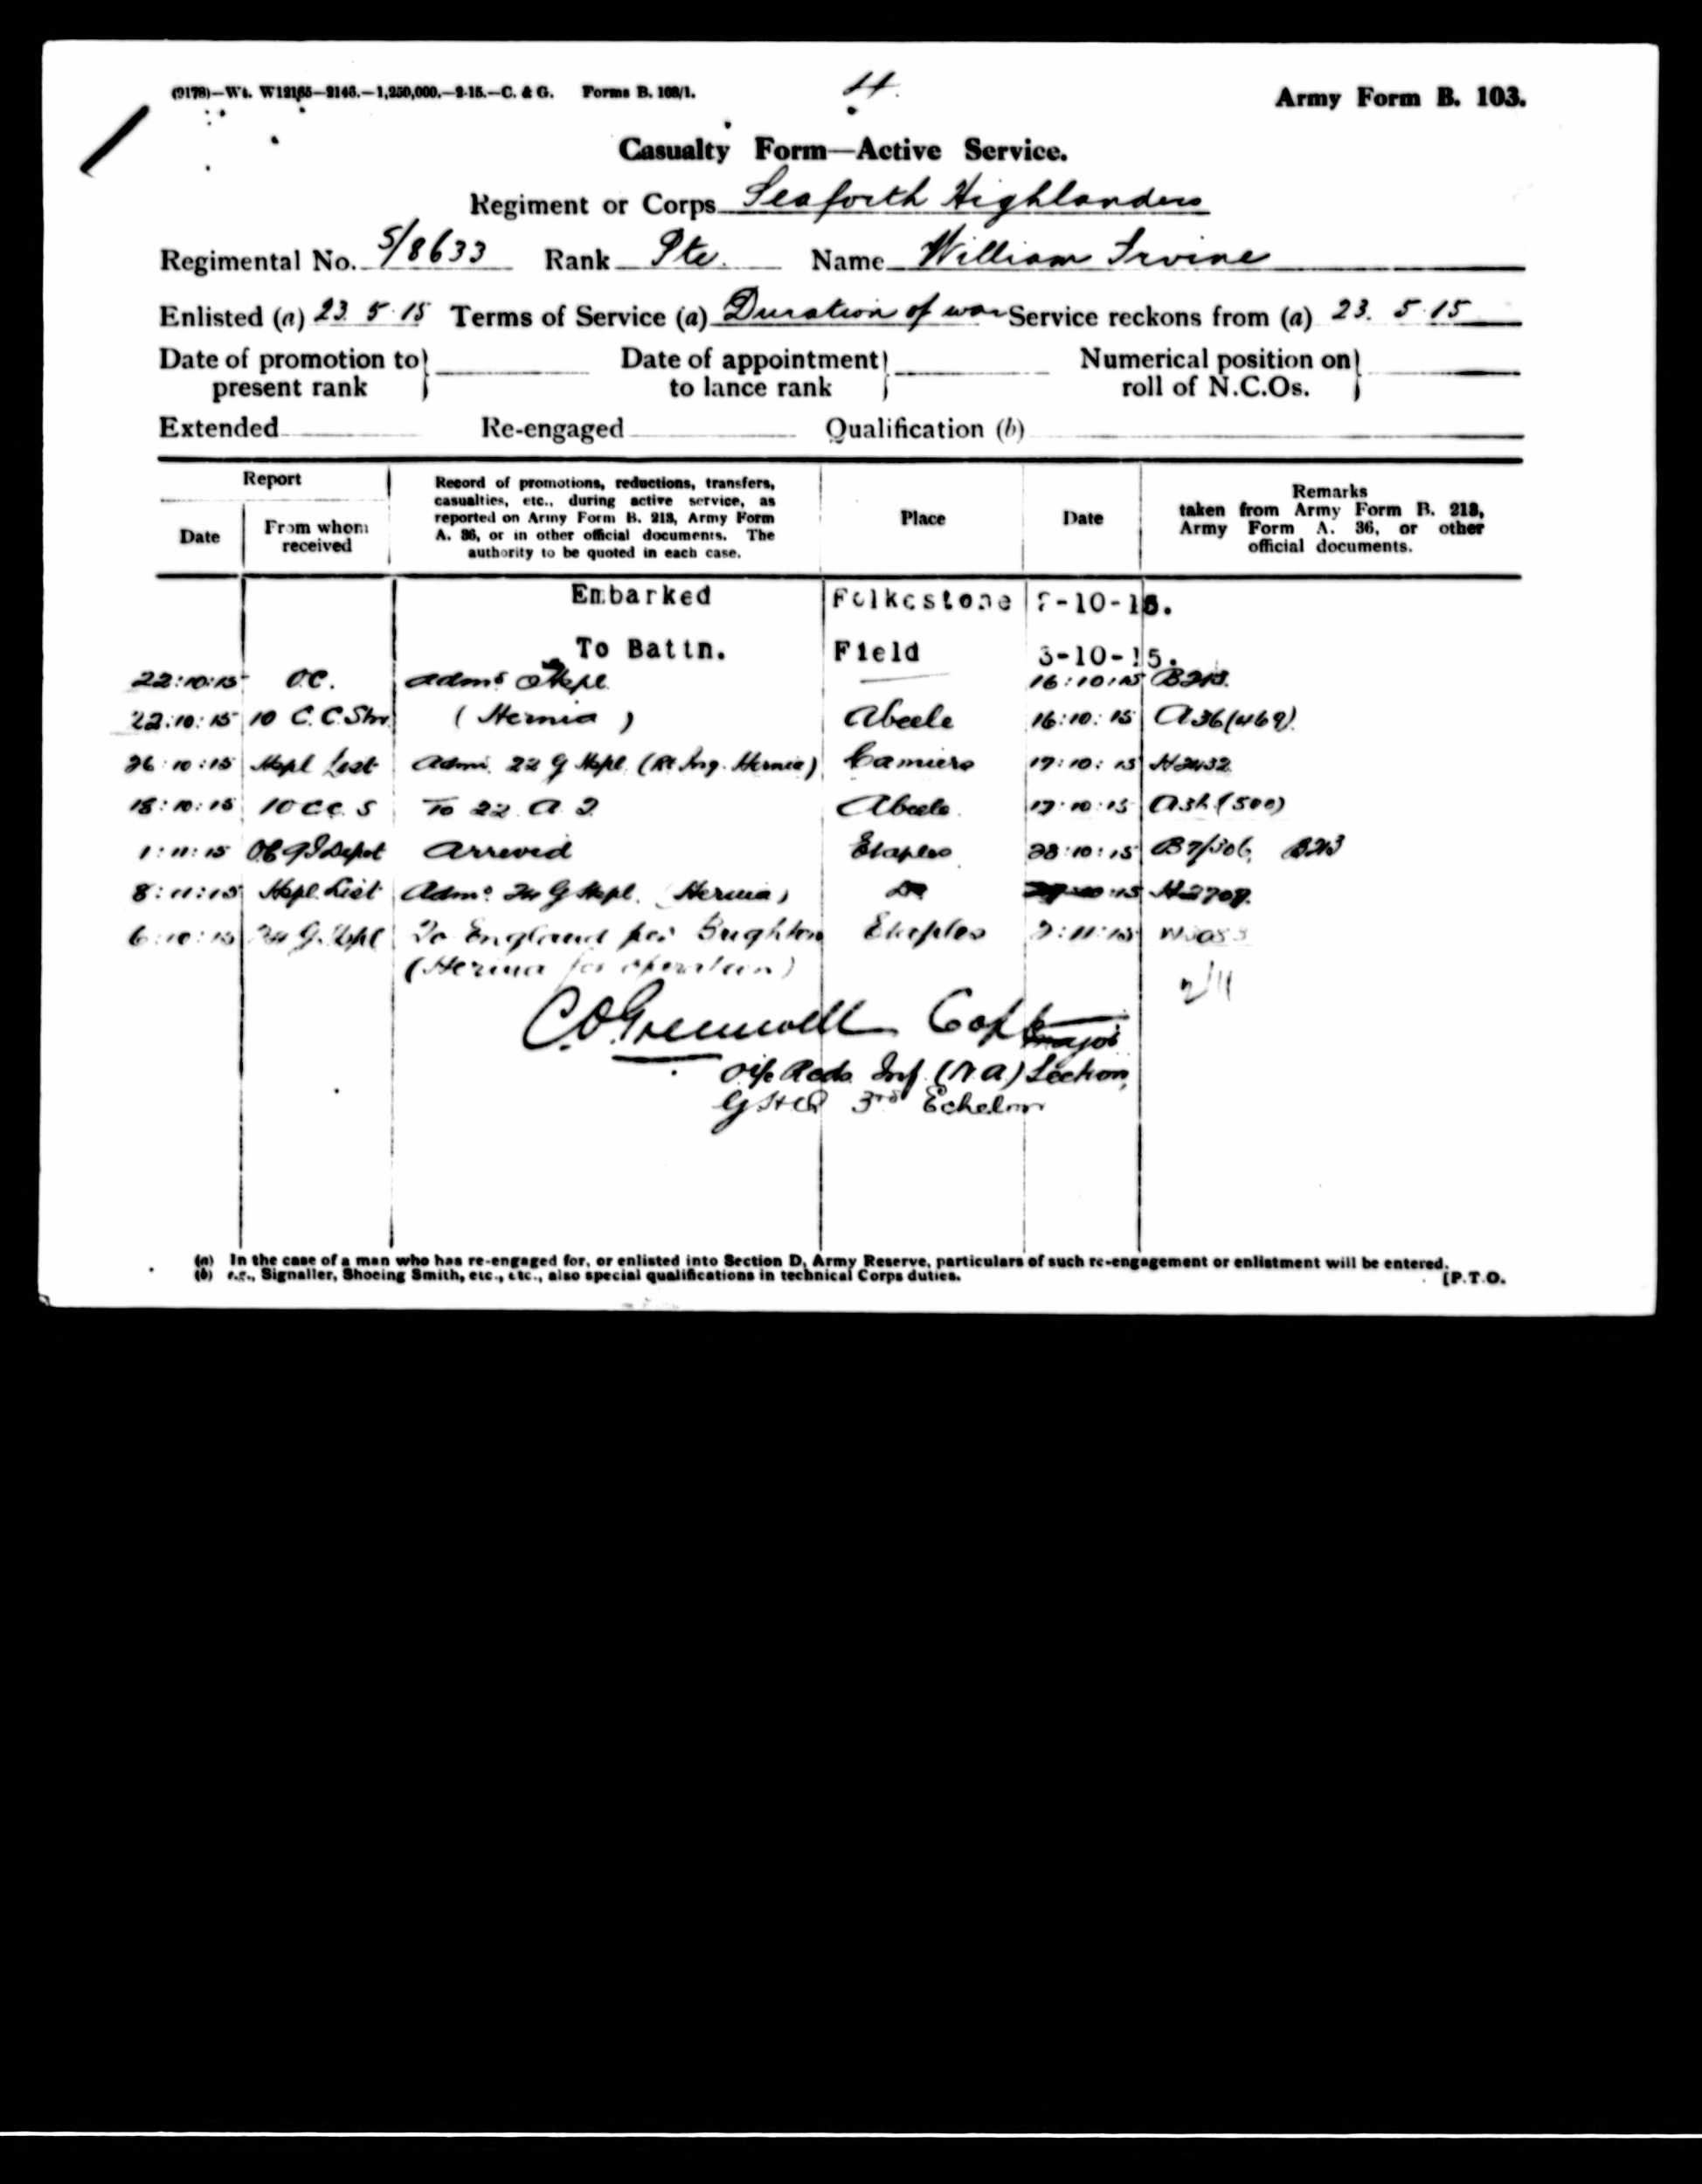 (9178)—Wt. W12165—2146.—1,250,000.—2-15.—C. & G. Forms B. 103/1.
Army Form B. 103.
Casualty Form—Active Service.
Regiment or Corps Seaforth Highlanders
Regimental No. S/8633 Rank Pte. Name William Irvine
Enlisted (a) 23 5 15 Terms of Service (a) Duration of war Service reckons from (a) 23. 5 15
Date of promotion to present rank
Date of appointment to lance rank
Numerical position on roll of N.C.Os.
Extended Re-engaged Qualification (b)
Report
Date
From whom received
Record of promotions, reductions, transfers,
casualties, etc., during active service, as
reported on Army Form B. 213, Army Form
A. 36, or in other official documents. The
authority to be quoted in each case.
Place
Date
Remarks
taken from Army Form B. 213,
Army Form A. 36, or other
official documents.
Embarked Folkestone -10-15.
To Battn. Field 3-10-15.
22:10:15 O.C. Admd Hspl 16:10:15 B213.
22:10:15 10 C.C.Stn. (Hernia) Abeele 16:10:15 A36(469)
26:10:15 Hspl List Adm. 22 G Hspl (Rt Ing. Hernia) Camiers 17:10:15 H2432
18:10:15 10 C.C.S To 22 A.T. Abeele 17:10:15 A36 (500)
1:11:15 Depot Arrived Etaples 28:10:15 B213
8:11:15 Hspl List Admd 24 G Hspl. (Hernia) Do :10:15 H2707.
6:10:15 24 G. Hspl To England per Brighton Etaples 7:11:15
(Hernia for operation)
2/11
C.O. Greenwell Capt Major
O i/c Reds Inf. (N.A.) Section,
GHQ 3rd Echelon
(a) In the case of a man who has re-engaged for, or enlisted into Section D, Army Reserve, particulars of such re-engagement or enlistment will be entered.
(b) e.g., Signaller, Shoeing Smith, etc., etc., also special qualifications in technical Corps duties.
[P.T.O.